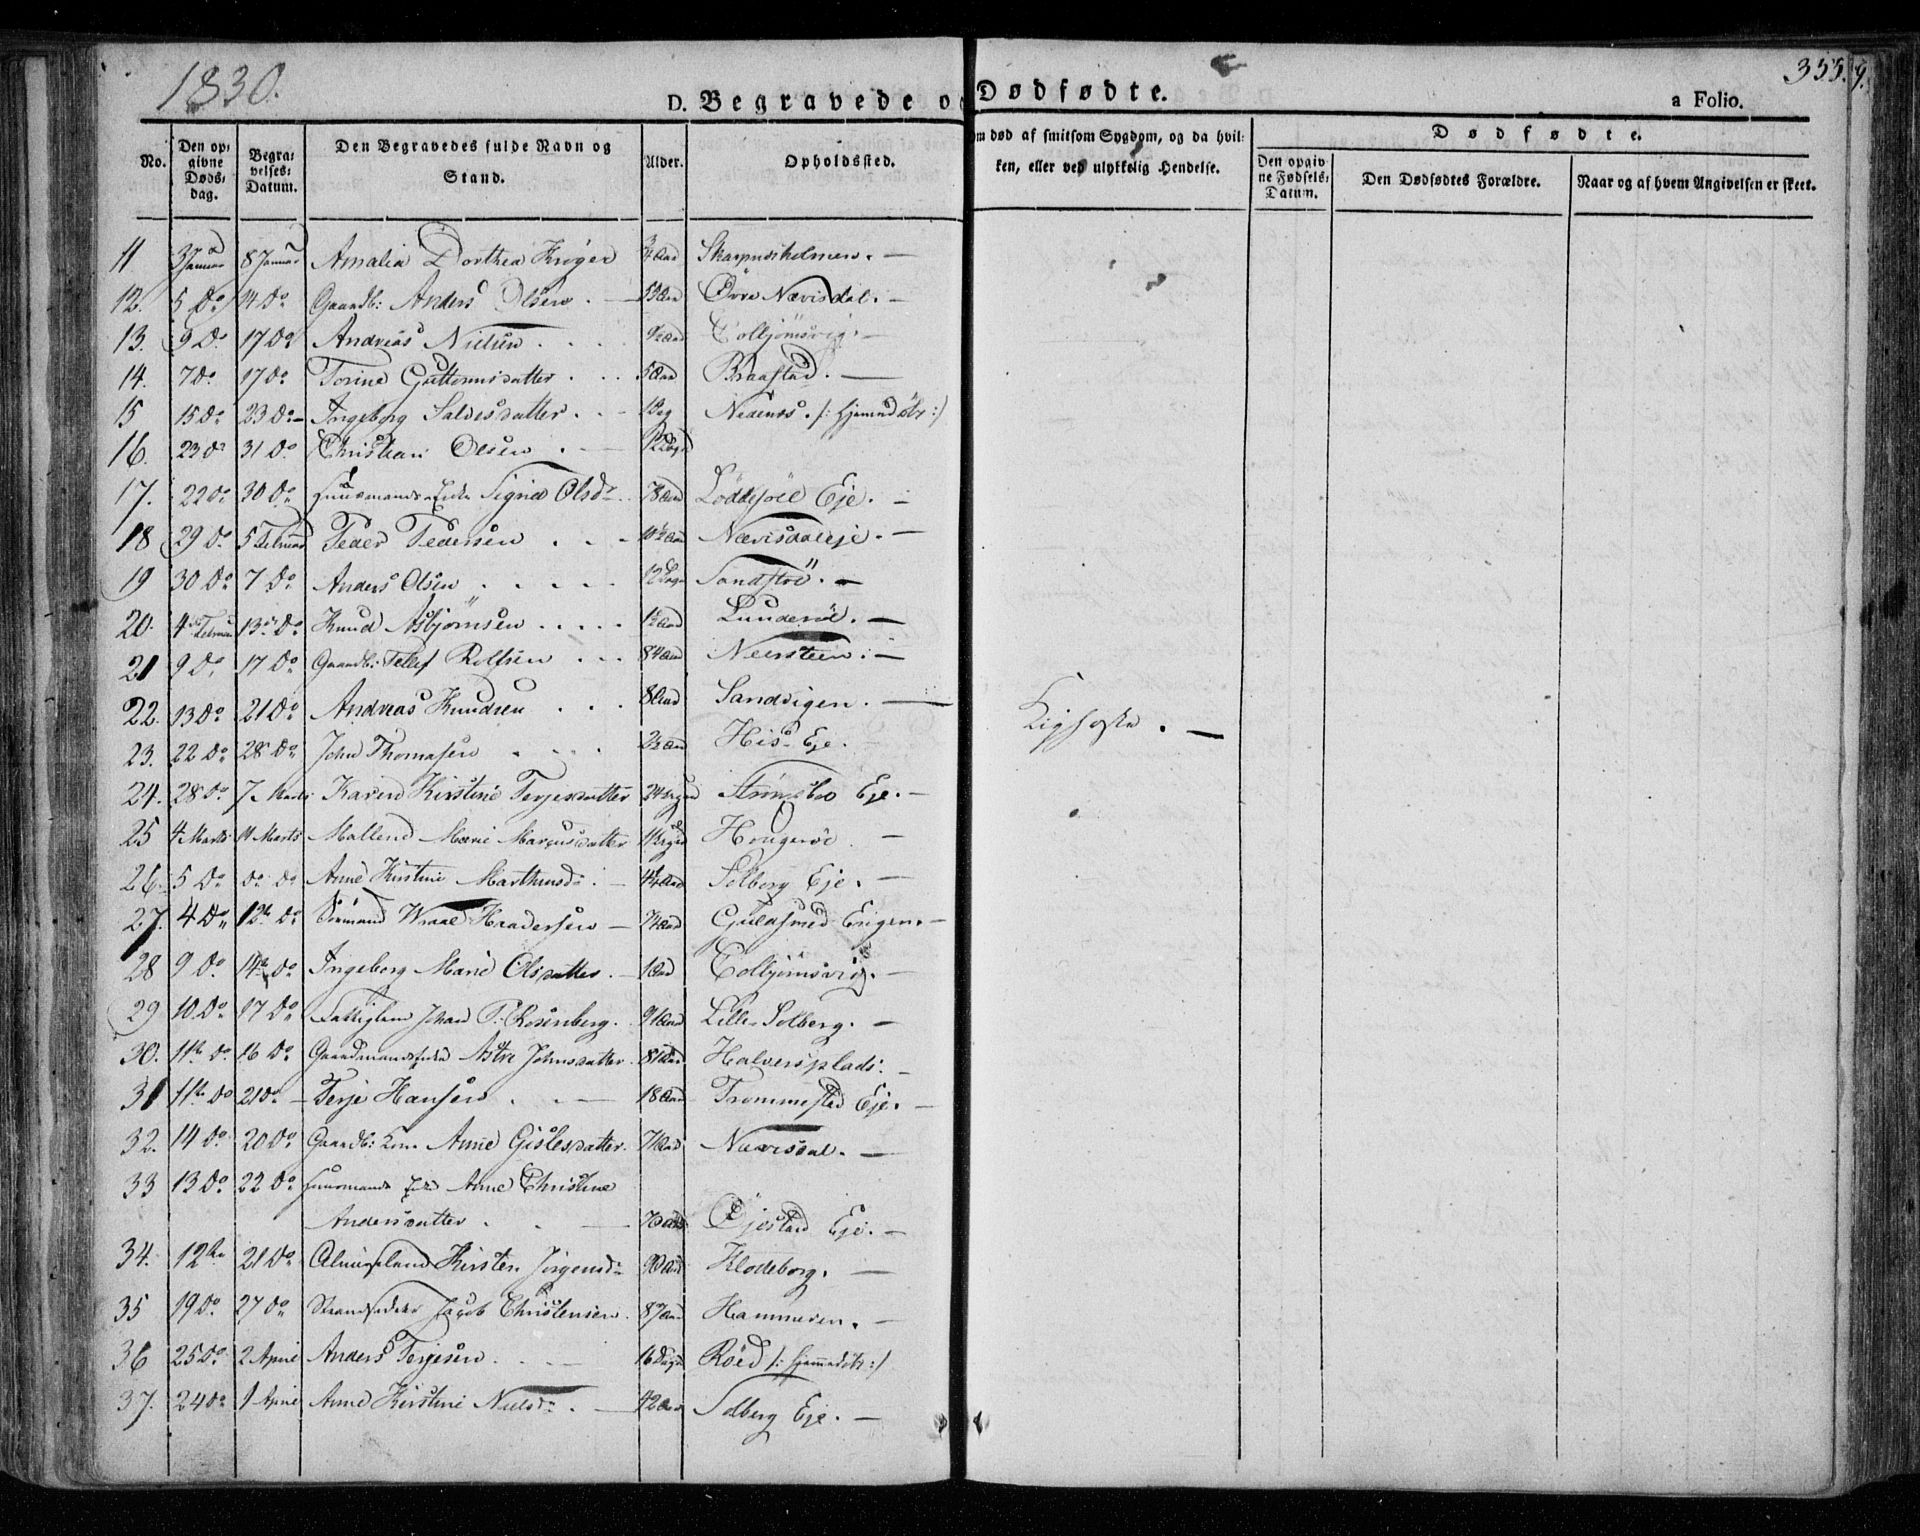 1830.
355.
D. Begravede o Dødfødte.
a Folio.
No.
Den opgivne Dødsdag.
Begravelses-Datum.
Den Begravedes fulde Navn og Stand.
Alder.
Opholdssted.
om død af smitsom Sygdom, og da hvilken, eller ved ulykkelig Hendelse.
Dødfødte.
Den opgivne Fødsels-Datum.
Den Dødfødtes Forældre.
Naar og af hvem Angivelsen er skeet.
11 3 Januar 8 Januar Amalia Dorthea Krøger 3/4 Aar
12. 5 Do 14 Do Gaardb: Anders Olsen 53 Aar Øvre Nævisdal.
13. 9 Do 17 Do Andreas Nielsen 9 1/2 Aar Colbjömsvig
14. 7 Do 17 Do Torine Guttormsdatter 5 Aar Braastad.
15 15 Do 23 Do Ingeborg Salvesdatter 1 Dag Nedenes. /: hjemmedöbt :/
16. 23 Do 31 Do Christian Olsen
17. 22 Do 30 Do Huusmands Enke Sigrid Olsdr 78 Aar Løddesöl Eje.
18 29 Do 5 Februar Peder Pedersen 10 1/2 Aar Nævisdaleje.
19 30 Do 7 Do Anders Olsen 12 Dage Sandstöe.
20. 4 Februar 13 Do Knud Asbjömsen 1 1/2 Aar Lunderöd.
21 9 Do 17 Do Gaardb: Tellef Rolfsen 84 Aar Neersteen.
22. 13 Do 21 Do Andreas Knudsen 8 Aar Sandvigen. Kighoste.
23. 22 Do 28 Do John Thomasen 2 1/2 Aar His Eje.
24. 28 Do 7 Marts Karen Kirstine Terjesdatter 24 Strömsboe Eje.
25 4 Marts 11 Marts Mallene Marie Marcusdatter Hougeröe
26. 5 Do Do Do Anne Kirstine Marthinsd: Solberg Eje.
27. 4 Do 12te Do Sömand Wraal Haadersen 74 Aar Guldsmed Engen.
28 9 Do 14te Do Ingeborg Marie Olsdatter 1 Aar Colbjömsvig.
29 10 Do 17 Do Fattiglem Johan P: Rosenberg. 91 Aar Lille Solberg.
30. 11te Do 16 Do Gaardmands Enke Astre Johnsdatter 81 Aar Halvorsplads.
31 11te Do 21 Do Terje Hansen 18 Aar Trommestad Eje.
32. 14 Do 20 Do Gaardb: Kone Anne Gislesdatter 71 Aar Nævisdal.
33 13 Do 22 Do Huusmands Enke Anne Christine
Andersdatter 70 Aar Öjestad Eje.
34. 12te 21 Do Almislem Kirsten Jörgensdr 90 Aar Klodeborg.
35 19 Do 27 Do Strandsidder Jacob Christensen 87 Aar Hammeren.
36 25 Do 2 April Anders Terjesen 16 Dage Röed /: hjemmedöbt :/
37. 24 Do 1 April Anne Kirstine Nielsdr 42 Aar Solberg Eje.